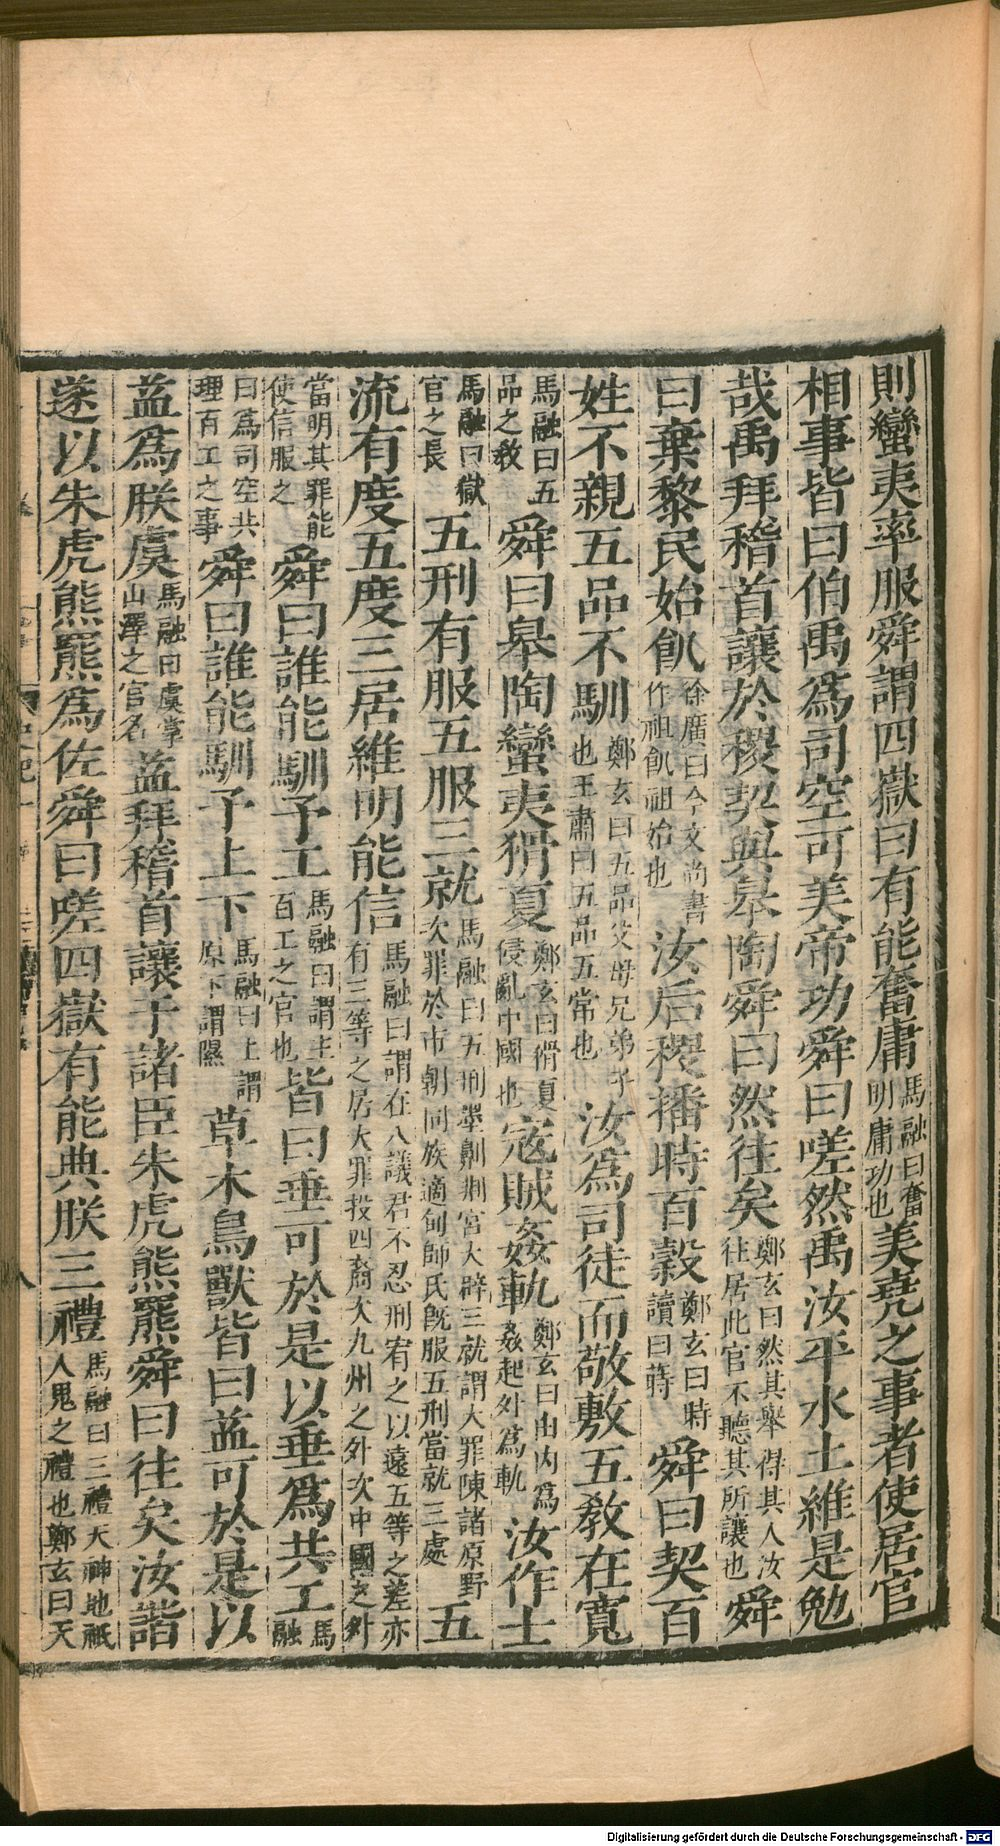 則蠻夷率服舜謂四嶽曰有能奮庸馬融曰奮明庸功也美堯之事者使居官
相事皆曰伯禹爲司空可美帝功舜曰嗟然禹汝平水土維是勉
哉禹拜稽首讓於稷契與皋陶舜曰然往矣鄭玄曰然其舉得其人汝往居此官不聽其所讓也舜
曰棄黎民始飢徐廣曰今文尚書作祖飢祖始也汝后稷播時百穀鄭玄曰時讀曰蒔舜曰契百
姓不親五品不馴鄭玄曰五品父母兄弟子也王肅曰五品五常也汝爲司徒而敬敷五教在寬
馬融曰五品之教舜曰皋陶蠻夷猾夏鄭玄曰猾夏侵亂中國也寇賊姦軌鄭玄曰由內爲姦起外爲軌汝作士
馬融曰獄官之長五刑有服五服三就馬融曰五刑墨劓剕宮大辟三就謂大罪陳諸原野次罪於市朝同族適甸師氏旣服五刑當就三處五
流有度五度三居維明能信馬融曰謂在八議君不忍刑宥之以遠五等之差亦有三等之居大罪投四裔次九州之外次中國之外
當明其罪能使信服之舜曰誰能馴予工馬融曰謂主百工之官也皆曰垂可於是以垂爲共工馬融
曰爲司空共理百工之事舜曰誰能馴予上下馬融曰上謂原下謂隰草木鳥獸皆曰益可於是以
益爲朕虞馬融曰虞掌山澤之官名益拜稽首讓于諸臣朱虎熊羆舜曰往矣汝諧
遂以朱虎熊羆爲佐舜曰嗟四嶽有能典朕三禮馬融曰三禮天神地祇人鬼之禮也鄭玄曰天
Digitalisierung gefördert durch die Deutsche Forschungsgemeinschaft - DFG